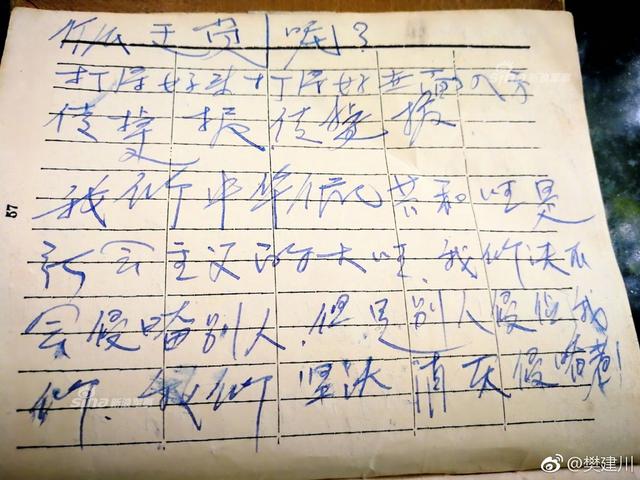 呢?
打得好来打得好
传捷报 传捷报
我们中华人民共和国是
会主义的大国,我们决不
会侵略别人,但是别人侵犯我
们,我们坚决消灭侵略者!
57
sina 新浪军事
@樊建川